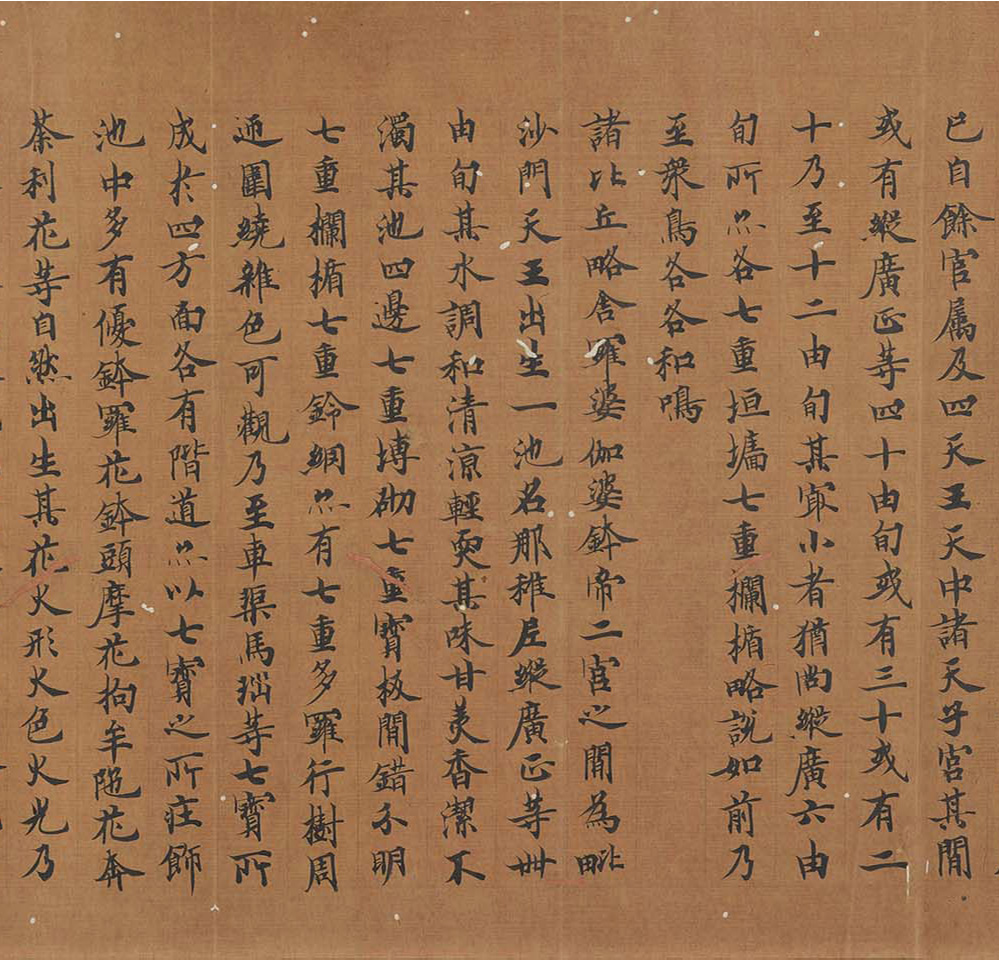 已自餘官属及四天王天中諸天子宮其間
或有縱廣正等四十由旬或有三十或有二
十乃至十二由旬其寂小者猶尚縱廣六由
旬所亦各七重垣墻七重欄楯略説如前乃
至衆鳥各各和鳴
諸比丘略舍羅婆伽婆鉢帝二宮之間為毗
沙門天王出生一池名那稚尼縱廣正等卌
由旬其水調和清涼輕耎其味甘美香潔不
濁其池四邊七重塼砌七重寶板間錯分明
七重欄楯七重鈴網亦有七重多羅行樹周
迊圍繞雜色可觀乃至車磲馬瑙等七寶所
成於四方面各有階道亦以七寶之所庄飾
池中多有優鉢羅花鉢頭摩花拘牟陁花奔
荼利花等自然出生其花火形火色火光乃